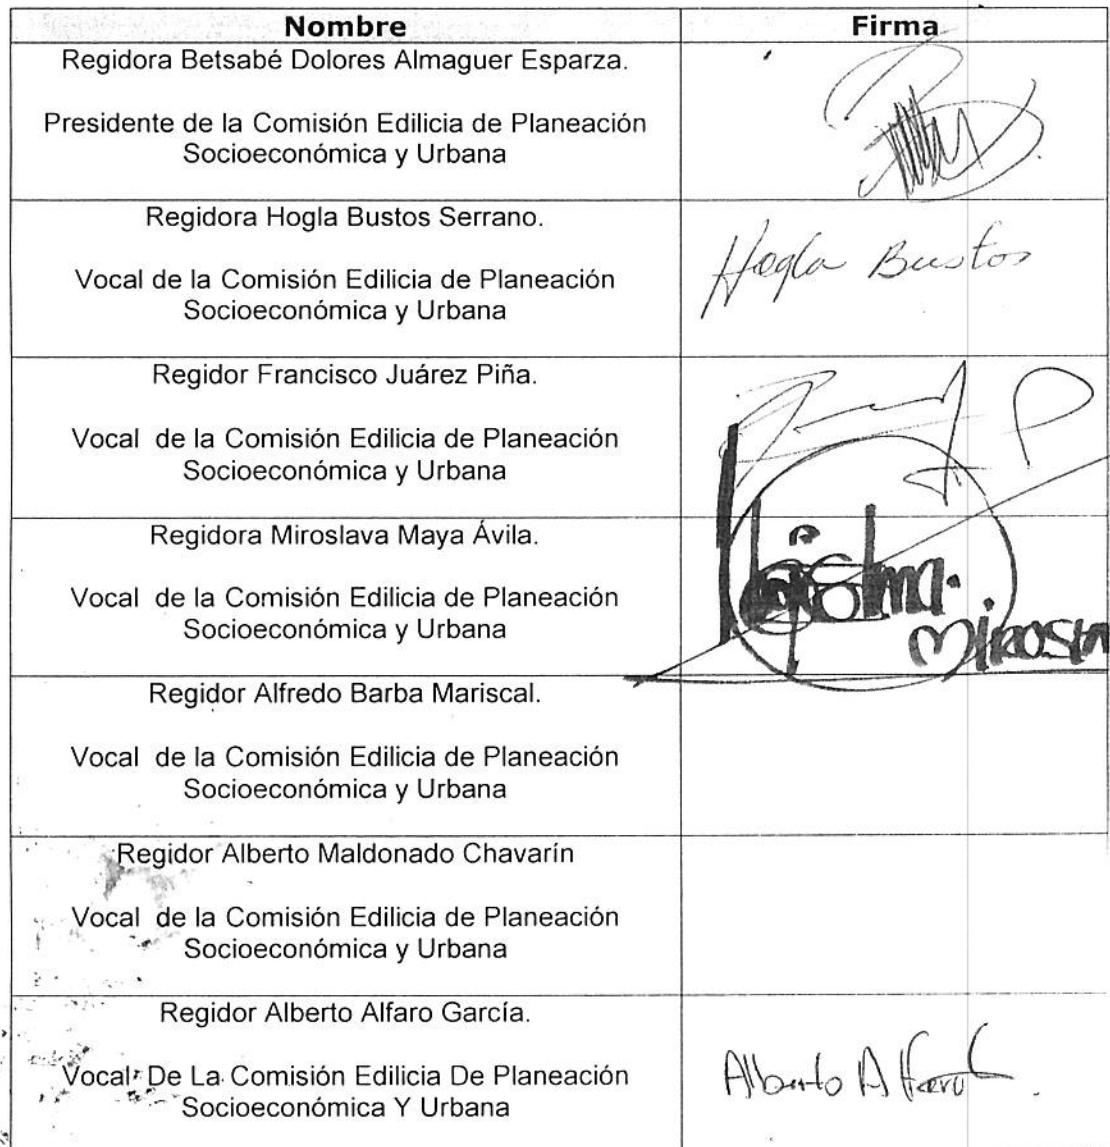 Nombre Firma
Regidora Betsabé Dolores Almaguer Esparza.
Presidente de la Comisión Edilicia de Planeación
Socioeconómica y Urbana
Regidora Hogla Bustos Serrano.
Hogla Bustos
Vocal de la Comisión Edilicia de Planeación
Socioeconómica y Urbana
Regidor Francisco Juárez Piña.
Vocal de la Comisión Edilicia de Planeación
Socioeconómica y Urbana
Regidora Miroslava Maya Ávila.
Vocal de la Comisión Edilicia de Planeación
Socioeconómica y Urbana
Regidor Alfredo Barba Mariscal.
Vocal de la Comisión Edilicia de Planeación
Socioeconómica y Urbana
Regidor Alberto Maldonado Chavarín
Vocal de la Comisión Edilicia de Planeación
Socioeconómica y Urbana
Regidor Alberto Alfaro García.
Vocal De La Comisión Edilicia De Planeación
Alberto Alfaro
Socioeconómica Y Urbana